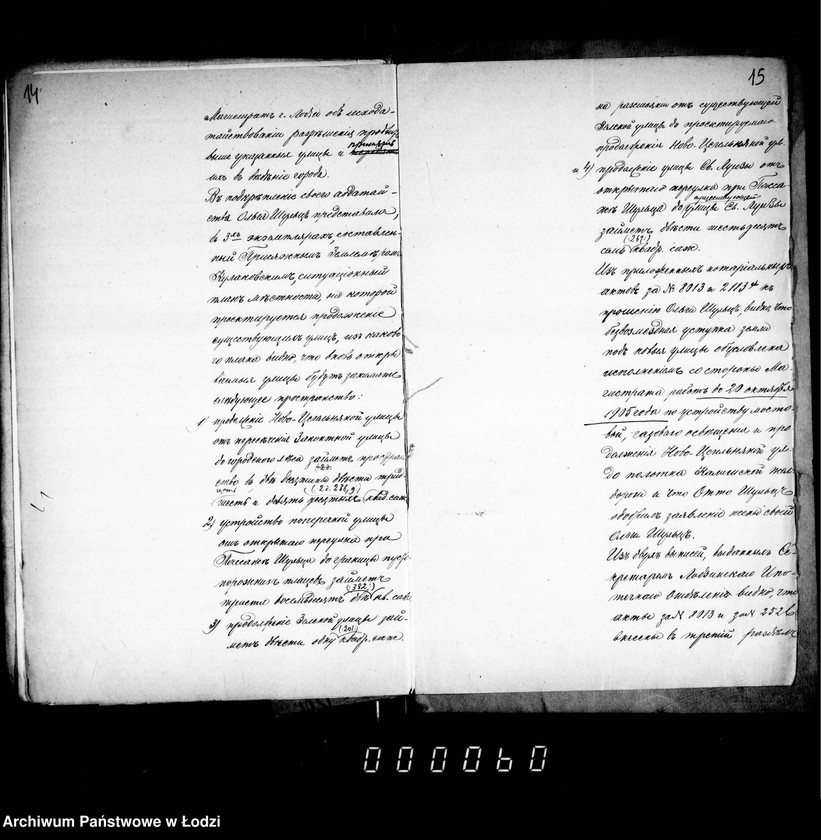 14
Магистратъ г. Лодзи объ исхода-
тайствованіи разрѣшенія
выше указанныя улицы и принятія
ихъ въ вѣдѣніе города.
Въ подкрѣпленіе своего ходатай-
ства Ольга Шульцъ представила,
въ 3хъ экземплярахъ, составлен-
ный Присяжнымъ Землемѣромъ
Кулаковскимъ, ситуаціонный
планъ мѣстности, на которой
проектируется продолженіе
существующихъ улицъ, изъ каково-
го плана видно, что вновь откры-
ваемыя улицы будутъ занимать
слѣдующее пространство:
1) продолженіе Ново-Цегельняной улицы
отъ пересѣченія Закontной улицы
до городского лѣса займетъ простран-
ство въ двѣ десятины двѣсти трид-
шесть и девять десятыхъ квад. саж.
2) устройство поперечной улицы
отъ открытаго переулка при
Пассажѣ Шульца до границы
порожнихъ плацевъ займетъ
триста восемьдесятъ двѣ (382) кв. саж.
3) продолженіе Зеленой улицы зай-
метъ двѣсти одну (201) квадр. саж.
15
на разстояніи отъ существующей
Зеленой улицы до проектируемаго
продолженія Ново-Цегельняной ул.
и 4) продолженіе улицы Св. Луизы отъ
открытаго переулка при Пасса-
жѣ Шульца до существующей улицы Св. Луизы
займетъ двѣсти шестьдесятъ
семь (267) квадр. саж.
Изъ приложенныхъ нотаріальныхъ
актовъ за № 8013 и 2113 къ
прошенію Ольги Шульцъ, видно, что
безвозмездная уступка земли
подъ новыя улицы обусловлена
исполненіемъ со стороны Ма-
гистрата работъ до 20 октября
1905 года по устройству мосто-
вой, газоваго освѣщенія и про-
долженія Ново-Цегельняной ул.
до полотна Калишской жел.
дороги и что Отто Шульцъ
одобрилъ заявленіе жены своей
Ольги Шульцъ.
Изъ двухъ выписей, выданныхъ Се-
кретаремъ Лодзинскаго Ипо-
течнаго Отдѣленія видно, что
акты за № 8013 и за №
внесены въ третій раздѣлъ
000060
Archiwum Państwowe w Łodzi